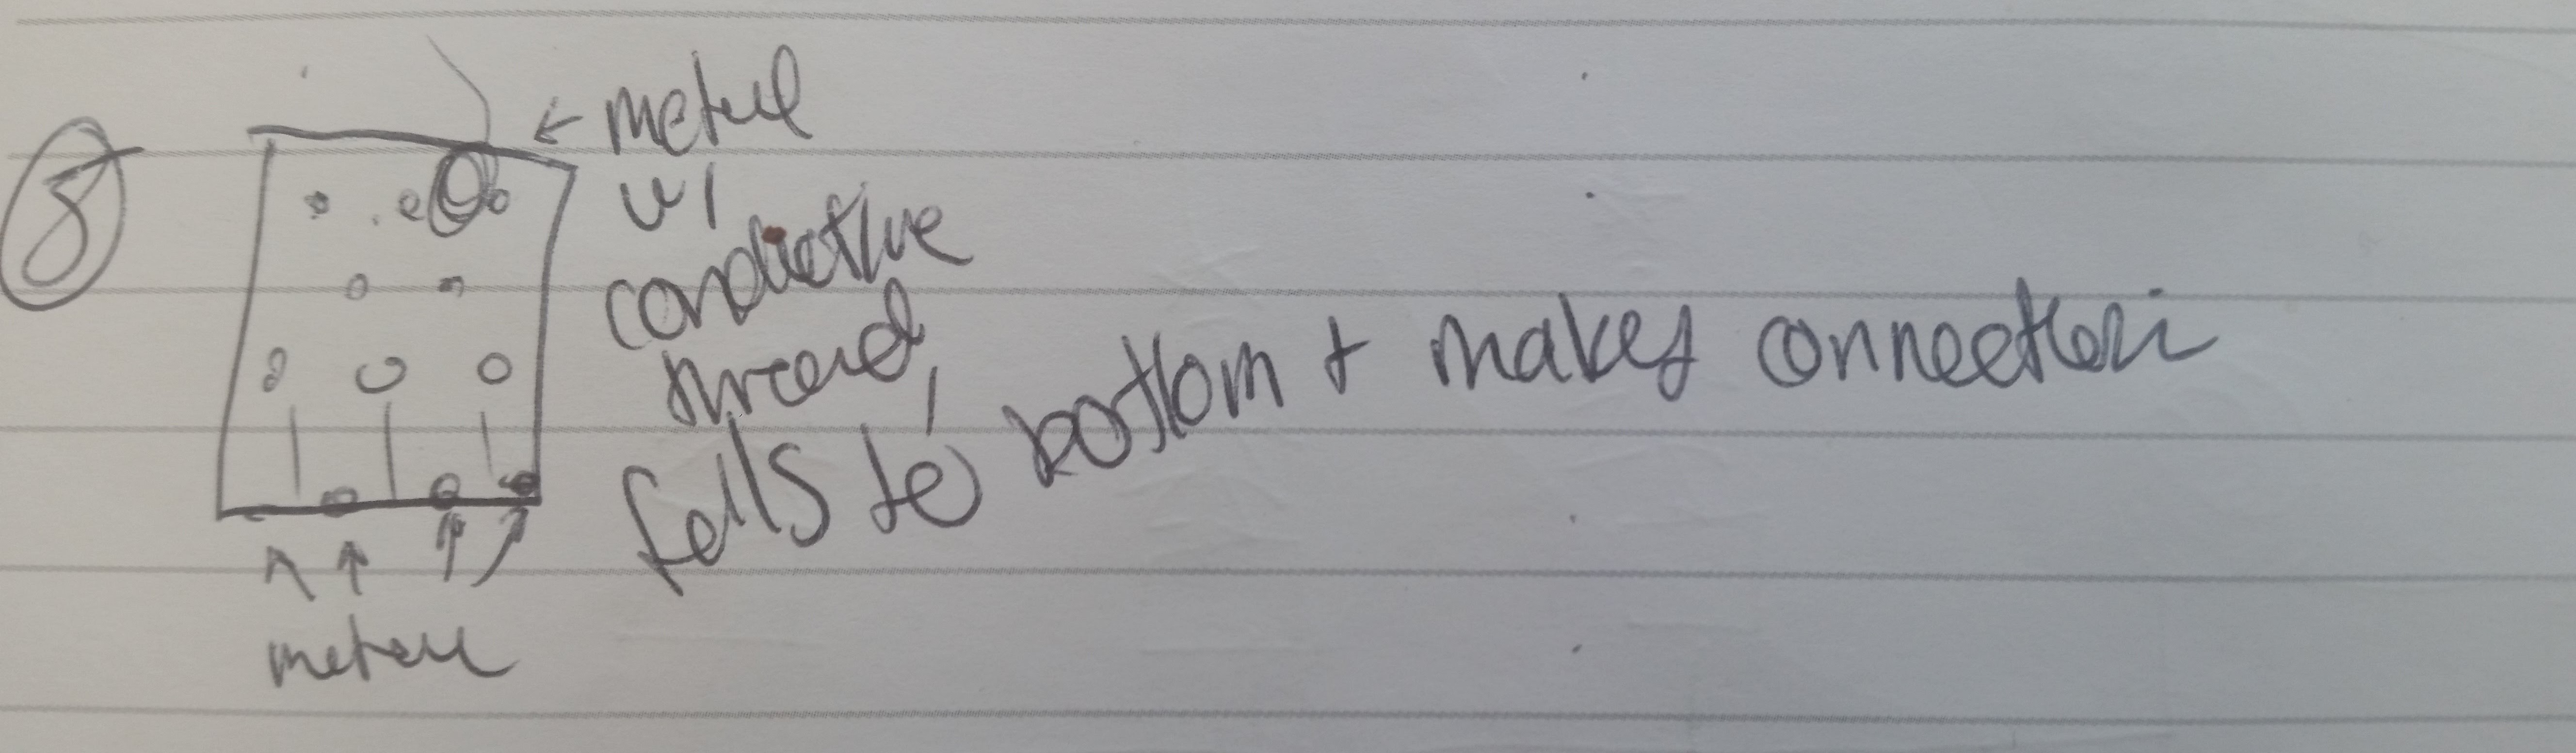 8
metal
w/
conductive
thread,
falls to bottom + makes connection
metal